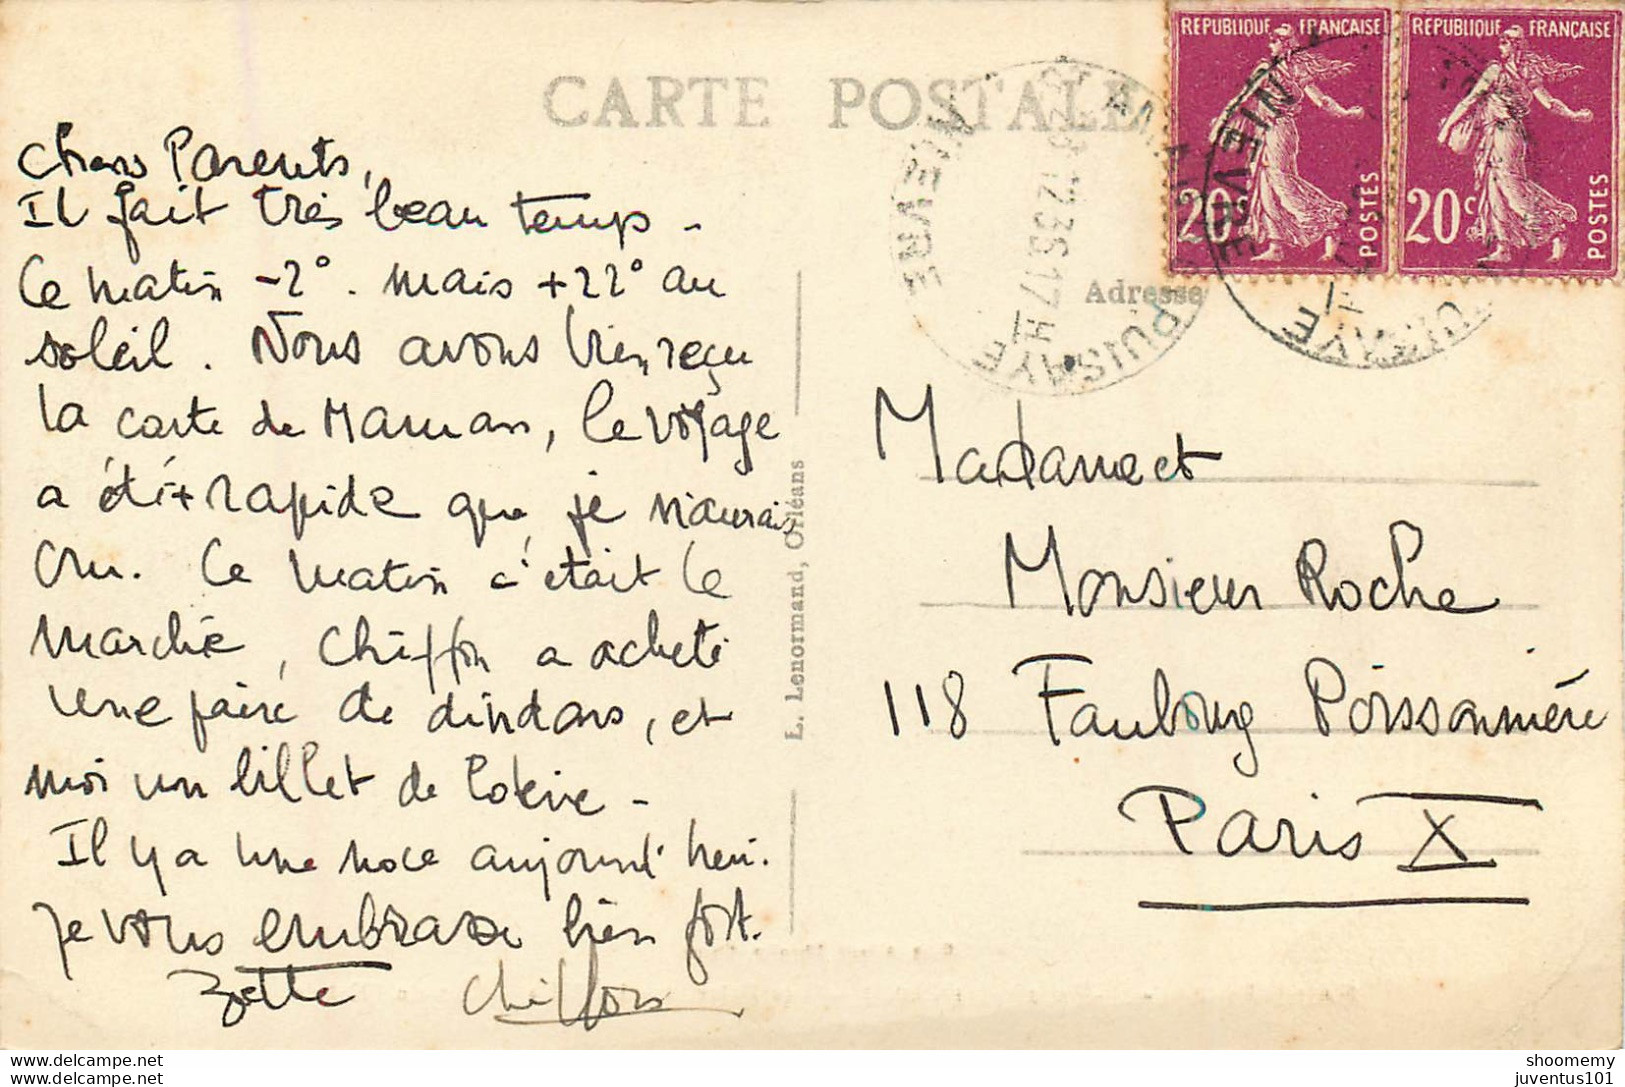 CARTE POSTALE
Chers Parents,
Il fait très beau temps -
Ce matin -2°. mais +22° au
soleil. Nous avons bien reçu
la carte de Maman, le voyage
a été + rapide que je n'aurais
cru. Ce matin c'était le
marché, Chiffon a acheté
une paire de dindons, et
moi un billet de loterie -
Il y a une noce aujourd'hui.
Je vous embrasse bien fort.
Zette Chiffon
L. Lenormand, Orléans
REPUBLIQUE FRANÇAISE
20c
POSTES
REPUBLIQUE FRANÇAISE
20c
POSTES
ST AMAND
PUISAYE
NIEVRE
12.36.17H
NIEVRE
PUISAYE
Adresse
Madame et
Monsieur Roche
118 Faubourg Poissonnière
Paris X
delcampe.net
shoomemy
delcampe.net
juventus101